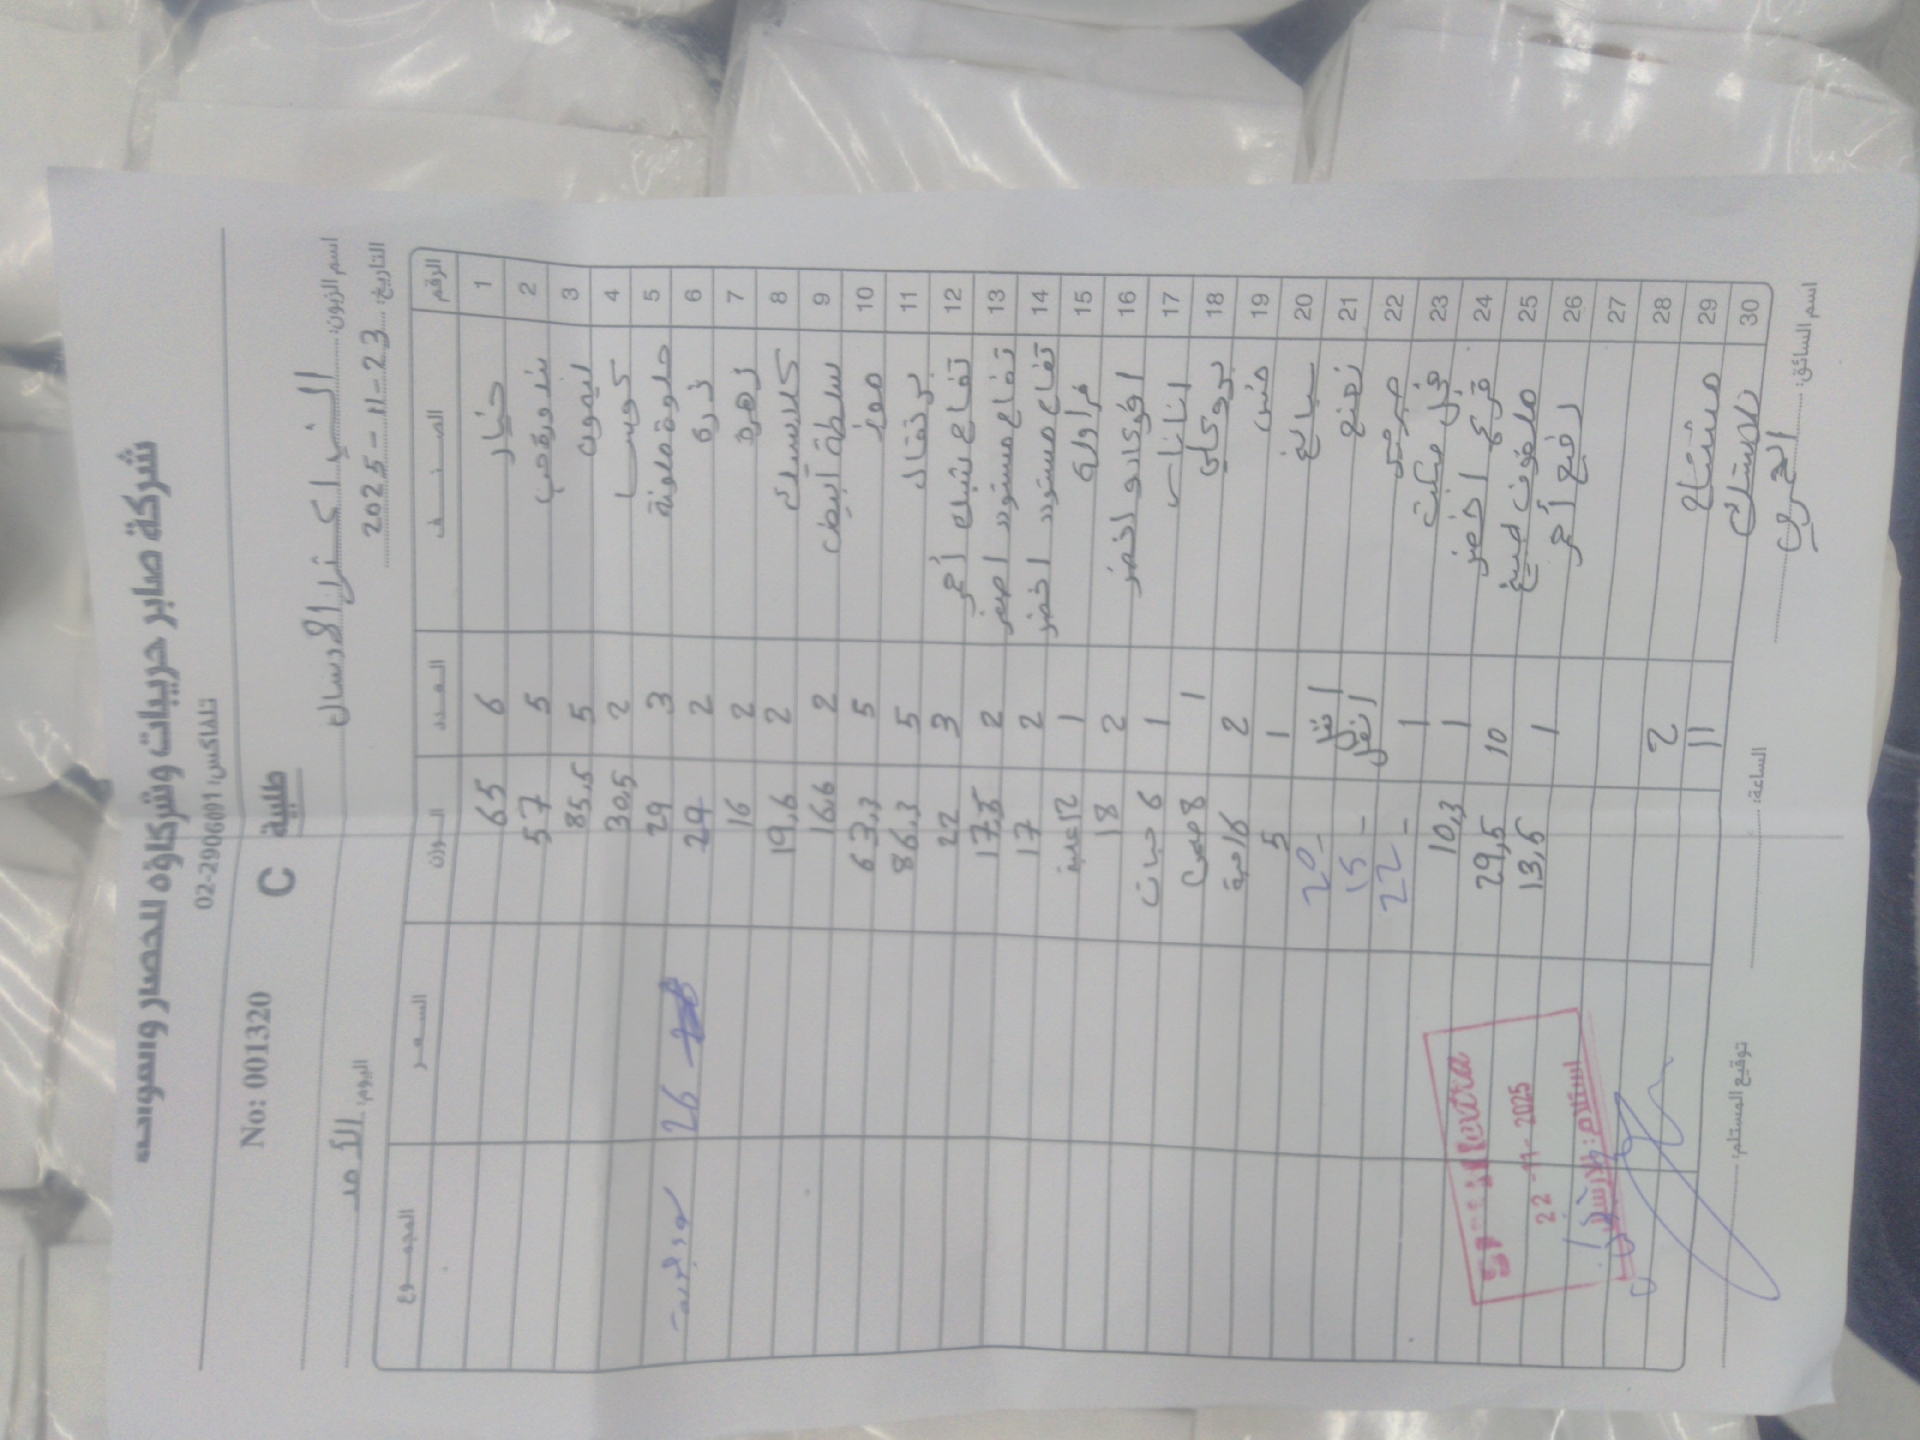 شركة صابر حريبات وشركاؤه للخضار والفواكه
تلفاكس: 02-2906091
No: 001320 C طلبية
اسم الزبون: الشني اكسترا الارسال
اليوم: الأحد التاريخ: 2025-11-23
الرقم الصنف العدد الوزن السعر المجموع
1 خيار 6 65
2 بندورة 5 57
3 ليمون 5 85,5
4 كوسا 2 30,5
5 حلوة ملونة 3 29
6 ذرة 2 29 26
7 زهرة 2 16
8 كلاسيك 2 19,6
9 سلطة أبيض 2 16,6
10 موز 5 63,3
11 برتقال 5 86,3
12 تفاح شباك أحمر 3 22
13 تفاح مستورد اصفر 2 17,5
14 تفاح مستورد اخضر 2 17
15 فراولة 1 12 علبة
16 افوكادو اخضر 2 18
17 اناناس 1 6 حبات
18 بروكلي 1 8
19 خس 2 16 حبة
20 سبانخ 1 5
21 نعنع 20
22 15
23 22
24 قرع اخضر 1 10,3
25 ملفوف 10 29,5
26 أحمر 1 13,6
27
28
29 مشتاح 2
30 بلاستيك 11
اسم السائق: الساعة: توقيع المستلم:
extra
22-11-2025
استلام: الارسال